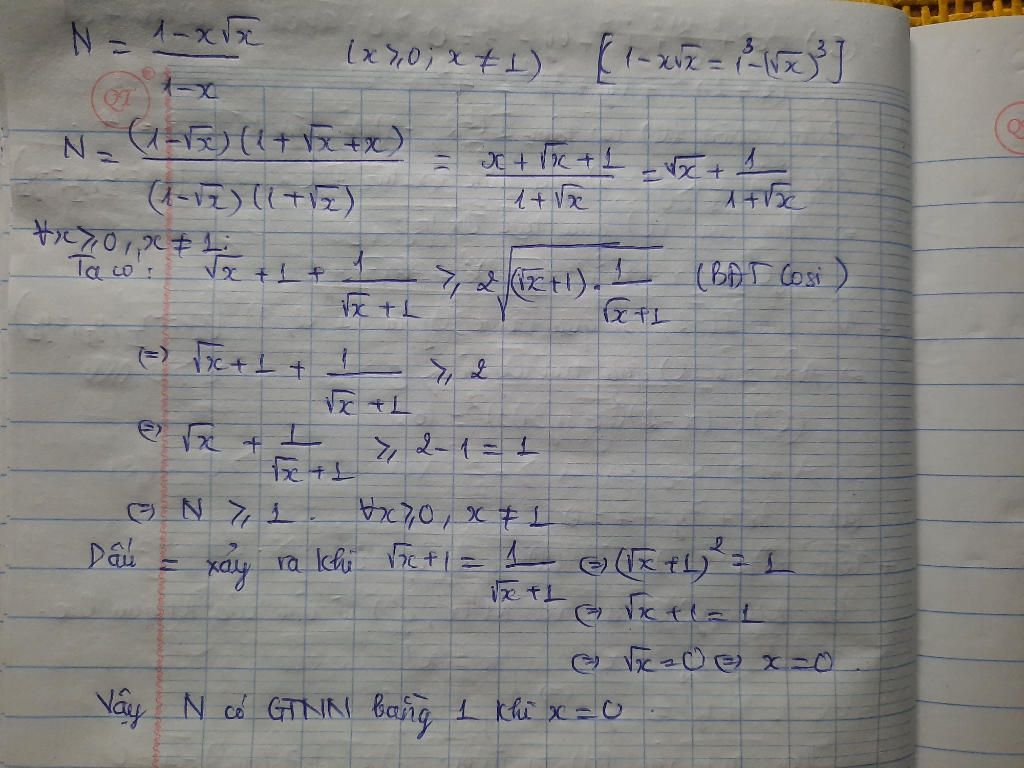 N = (1-x√x)/(1-x) (x ≥ 0; x ≠ 1) [1-x√x = 1³-(√x)³]
N = ((1-√x)(1+√x+x))/((1-√x)(1+√x)) = (x+√x+1)/(1+√x) = √x + 1/(1+√x)
∀x ≥ 0, x ≠ 1:
Ta có: √x + 1 + 1/(√x+1) ≥ 2√((√x+1).1/(√x+1)) (BĐT Cosi)
⇔ √x + 1 + 1/(√x+1) ≥ 2
⇔ √x + 1/(√x+1) ≥ 2-1 = 1
⇔ N ≥ 1. ∀x ≥ 0, x ≠ 1
Dấu = xảy ra khi √x+1 = 1/(√x+1) ⇔ (√x+1)² = 1
⇔ √x+1 = 1
⇔ √x = 0 ⇔ x = 0.
Vậy N có GTNN bằng 1 khi x = 0.